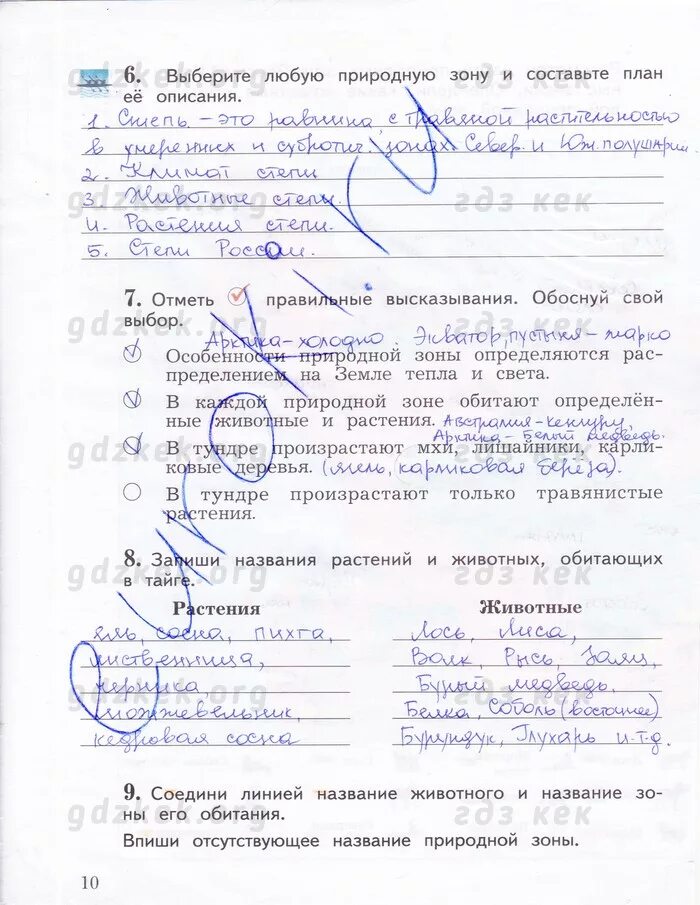 6. Выберите любую природную зону и составьте план
её описания.
1. Степь – это равнина с травяной растительностью
в умеренних и субтропич. зонах Север. и Юж. полушарий.
2. Климат степи
3. Животные степи.
4. Растения степи.
5. Степи России.
7. Отметь правильные высказывания. Обоснуй свой
выбор.
Арктика-холодно. Экватор, пустыня – жарко
Особенности природной зоны определяются рас-
пределением на Земле тепла и света.
В каждой природной зоне обитают определён-
ные животные и растения. Австралия-кенгуру,
Арктика - Белый медведь.
В тундре произрастают мхи, лишайники, карли-
ковые деревья. (ягель, карликовая берёза).
В тундре произрастают только травянистые
растения.
8. Запиши названия растений и животных, обитающих
в тайге.
Растения
ель, сосна, пихта,
лиственница,
черника,
можжевельник,
кедровая сосна
Животные
Лось, Лиса,
Волк, Рысь, Заяц
Бурый медведь,
Белка, Соболь (восточнее)
Бурундук, Глухарь и т.д.
9. Соедини линией название животного и название зо-
ны его обитания.
Впиши отсутствующее название природной зоны.
10
gdzkek.org
гдз кек
gdzkek.org
гдз кек
gdzkek.org
гдз кек
gdzkek.org
гдз кек
gdzkek.org
гдз кек
gdzkek.org
гдз кек
gdzkek.org
гдз кек